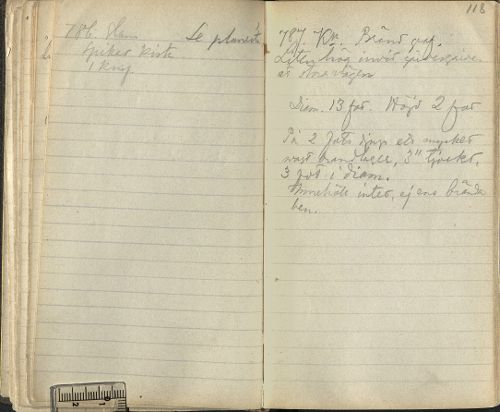 786. Ham Se planen
spiker kista
1 knif
118
787. Kr. Bränd graf.
Liten hög invid
at stora vägen
Diam. 13 fot. Höjd 2 fot
På 2 fots djup ett mycket
svart brandlager, 3" tjockt,
3 fot i diam.
Innehöll intet, ej ens brända
ben.